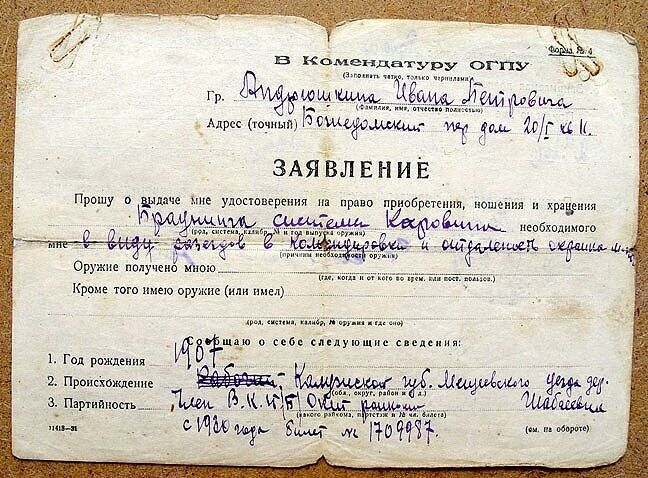 Форма № 4
В Комендатуру ОГПУ
(Заполнять четко, только чернилами)
Гр. Андрюшкина Ивана Петровича
(Фамилия, имя, отчество полностью)
Адрес (точный) Божедомский пер дом 20/I кв 11.
ЗАЯВЛЕНИЕ
Прошу о выдаче мне удостоверения на право приобретения, ношения и хранения
Браунинга система Каровина необходимого
(род, система, калибр, № и год выпуска оружия)
мне в виду разездов в командировки и отдаленость окраина
(причины необходимости оружия)
Оружие получено мною
(где, когда и от кого во врем. или пост. пользов.)
Кроме того имею оружие (или имел)
(род, система, калибр, № оружия и где оно)
Сообщаю о себе следующие сведения:
1. Год рождения 1907
2. Происхождение Рабочий, Калужской губ. Мещевского уезда дер.
(обл., округ, район и д.)
3. Партийность Член В.К.П/б/ Окт райком Шабаевка
(какого райкома, партстаж и № чл. билета)
с 1930 года билет № 1709987.
11413—31 (см. на обороте)